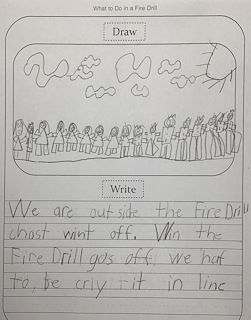 What to Do in a Fire Drill
Draw
Write
We are outside the Fire Drill
chost wint off. Win the
Fire Drill gos off. we haf
to, be criy rit in linc